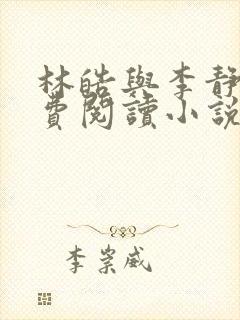 林皓與李靜
費閱讀小說
李崇威